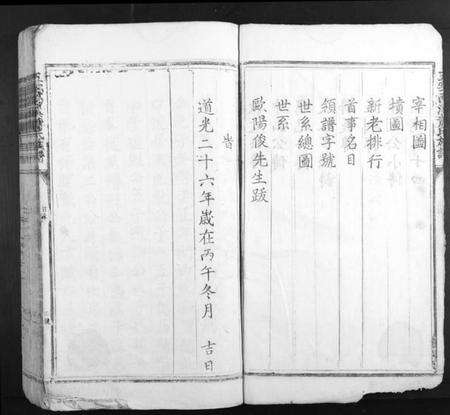 宰相圖
墳圖
新老排行
首事名目
領譜字號
世系總圖
世系
歐陽俊先生跋
道光二十六年歲在丙午冬月 吉日